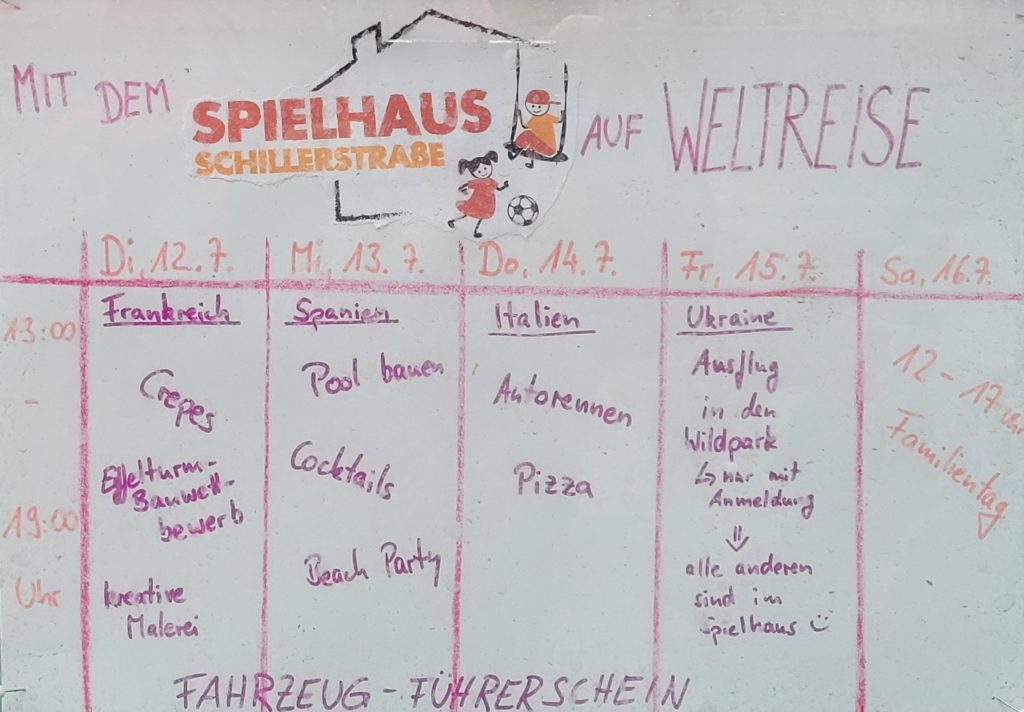 MIT DEM
SPIELHAUS
SCHILLERSTRAßE
AUF WELTREISE
13:00
-
19:00
Uhr
Di, 12.7.
Frankreich
Crepes
Eiffelturm-
Bauwett-
bewerb
kreative
Malerei
Mi, 13.7.
Spanien
Pool bauen
Cocktails
Beach Party
Do, 14.7.
Italien
Autorennen
Pizza
Fr, 15.7.
Ukraine
Ausflug
in den
Wildpark
↳ nur mit
Anmeldung
⇓
alle anderen
sind im
Spielhaus
Sa, 16.7.
12-17 Uhr
Familientag
FAHRZEUG-FÜHRERSCHEIN